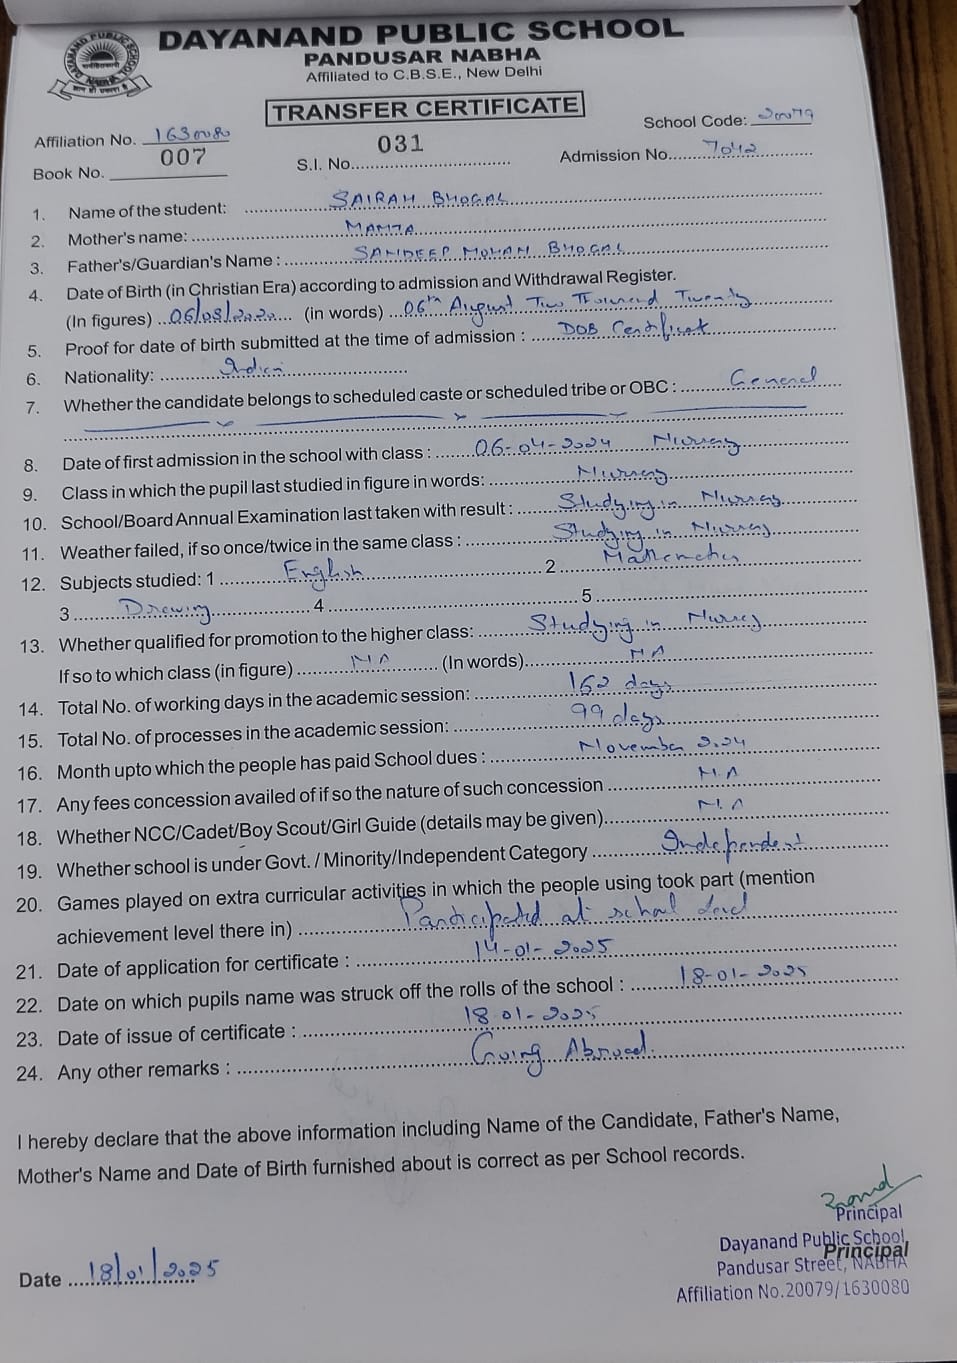 DAYANAND PUBLIC SCHOOL
PANDUSAR NABHA
Affiliated to C.B.S.E., New Delhi
TRANSFER CERTIFICATE
Affiliation No. 1630080
School Code: 20079
Book No. 007
S.I. No. 031
Admission No. 7042
1. Name of the student: SAIRAH BHOGAL
2. Mother's name: MAMTA
3. Father's/Guardian's Name : SANDEEP MOHAN BHOGAL
4. Date of Birth (in Christian Era) according to admission and Withdrawal Register.
(In figures) 06/08/2020 (in words) 06th August Two Thousand Twenty
5. Proof for date of birth submitted at the time of admission : DOB Certificate
6. Nationality: Indian
7. Whether the candidate belongs to scheduled caste or scheduled tribe or OBC : General
8. Date of first admission in the school with class : 06-04-2024 Nursery
9. Class in which the pupil last studied in figure in words: Nursery
10. School/Board Annual Examination last taken with result : Studying in Nursery
11. Weather failed, if so once/twice in the same class : Studying in Nursery
12. Subjects studied: 1 English 2 Mathematics
3 Drawing 4 5
13. Whether qualified for promotion to the higher class: Studying in Nursery
If so to which class (in figure) NA (In words) NA
14. Total No. of working days in the academic session: 162 days
15. Total No. of processes in the academic session: 99 days
16. Month upto which the people has paid School dues : November 2024
17. Any fees concession availed of if so the nature of such concession N.A
18. Whether NCC/Cadet/Boy Scout/Girl Guide (details may be given) N.A
19. Whether school is under Govt. / Minority/Independent Category Independent
20. Games played on extra curricular activities in which the people using took part (mention
achievement level there in) Participated at school level
21. Date of application for certificate : 14-01-2025
22. Date on which pupils name was struck off the rolls of the school : 18-01-2025
23. Date of issue of certificate : 18-01-2025
24. Any other remarks : Going Abroad.
I hereby declare that the above information including Name of the Candidate, Father's Name,
Mother's Name and Date of Birth furnished about is correct as per School records.
Principal
Dayanand Public School,
Principal
Pandusar Street, NABHA
Date 18/01/2025
Affiliation No.20079/1630080